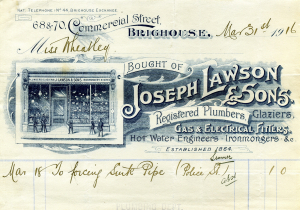 Nat. Telephone - No 44, Brighouse Exchange
68 & 70, Commercial Street,
Brighouse, Mar 31st 1916
Miss Wheatley
Bought of
Joseph Lawson
& Sons,
Registered Plumbers, Glaziers,
Gas & Electrical Fitters,
Hot Water Engineers - Ironmongers - &c
Established 1864.
Mar 18 To forcing Sink Pipe (Police St) 1 0